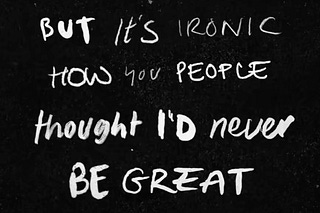 BUT It'S IRONIC
HOW you PEOPLE
thought I'D never
BE GREAT